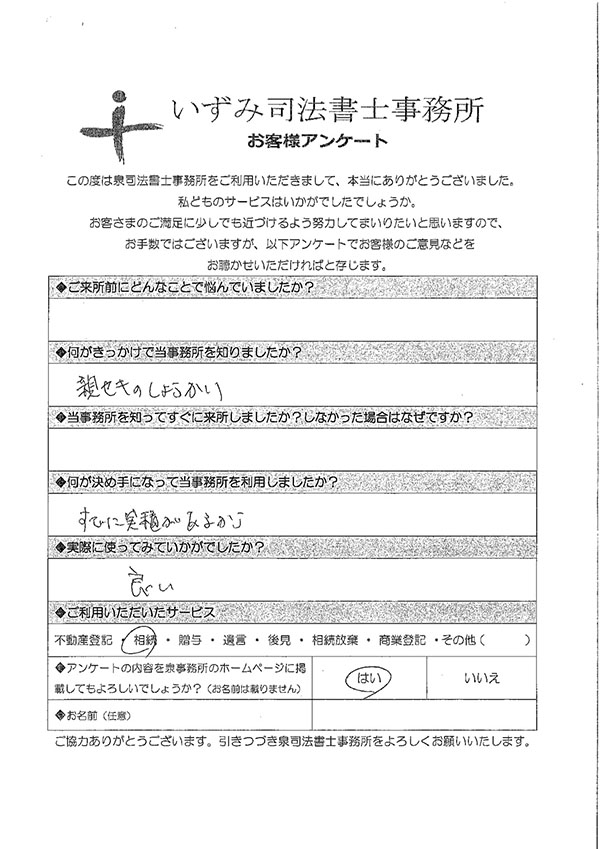 いずみ司法書士事務所
お客様アンケート
この度は泉司法書士事務所をご利用いただきまして、本当にありがとうございました。
私どものサービスはいかがでしたでしょうか。
お客さまのご満足に少しでも近づけるよう努力してまいりたいと思いますので、
お手数ではございますが、以下アンケートでお客様のご意見などを
お聴かせいただければと存じます。
◆ご来所前にどんなことで悩んでいましたか？
◆何がきっかけで当事務所を知りましたか？
親セキのしょうかい
◆当事務所を知ってすぐに来所しましたか？しなかった場合はなぜですか？
◆何が決め手になって当事務所を利用しましたか？
すでに実績があるから
◆実際に使ってみていかがでしたか？
良い
◆ご利用いただいたサービス
不動産登記 ・ 相続 ・ 贈与 ・ 遺言 ・ 後見 ・ 相続放棄 ・ 商業登記 ・その他（　　）
◆アンケートの内容を泉事務所のホームページに掲
載してもよろしいでしょうか？（お名前は載りません）
はい
いいえ
◆お名前（任意）
ご協力ありがとうございます。引きつづき泉司法書士事務所をよろしくお願いいたします。